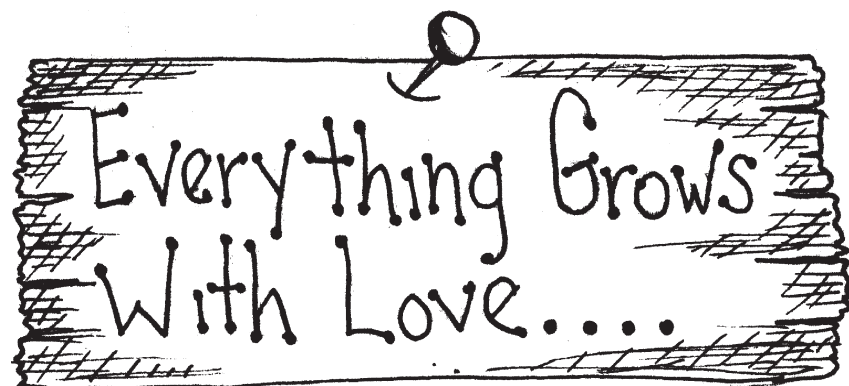 Everything Grows
With Love....